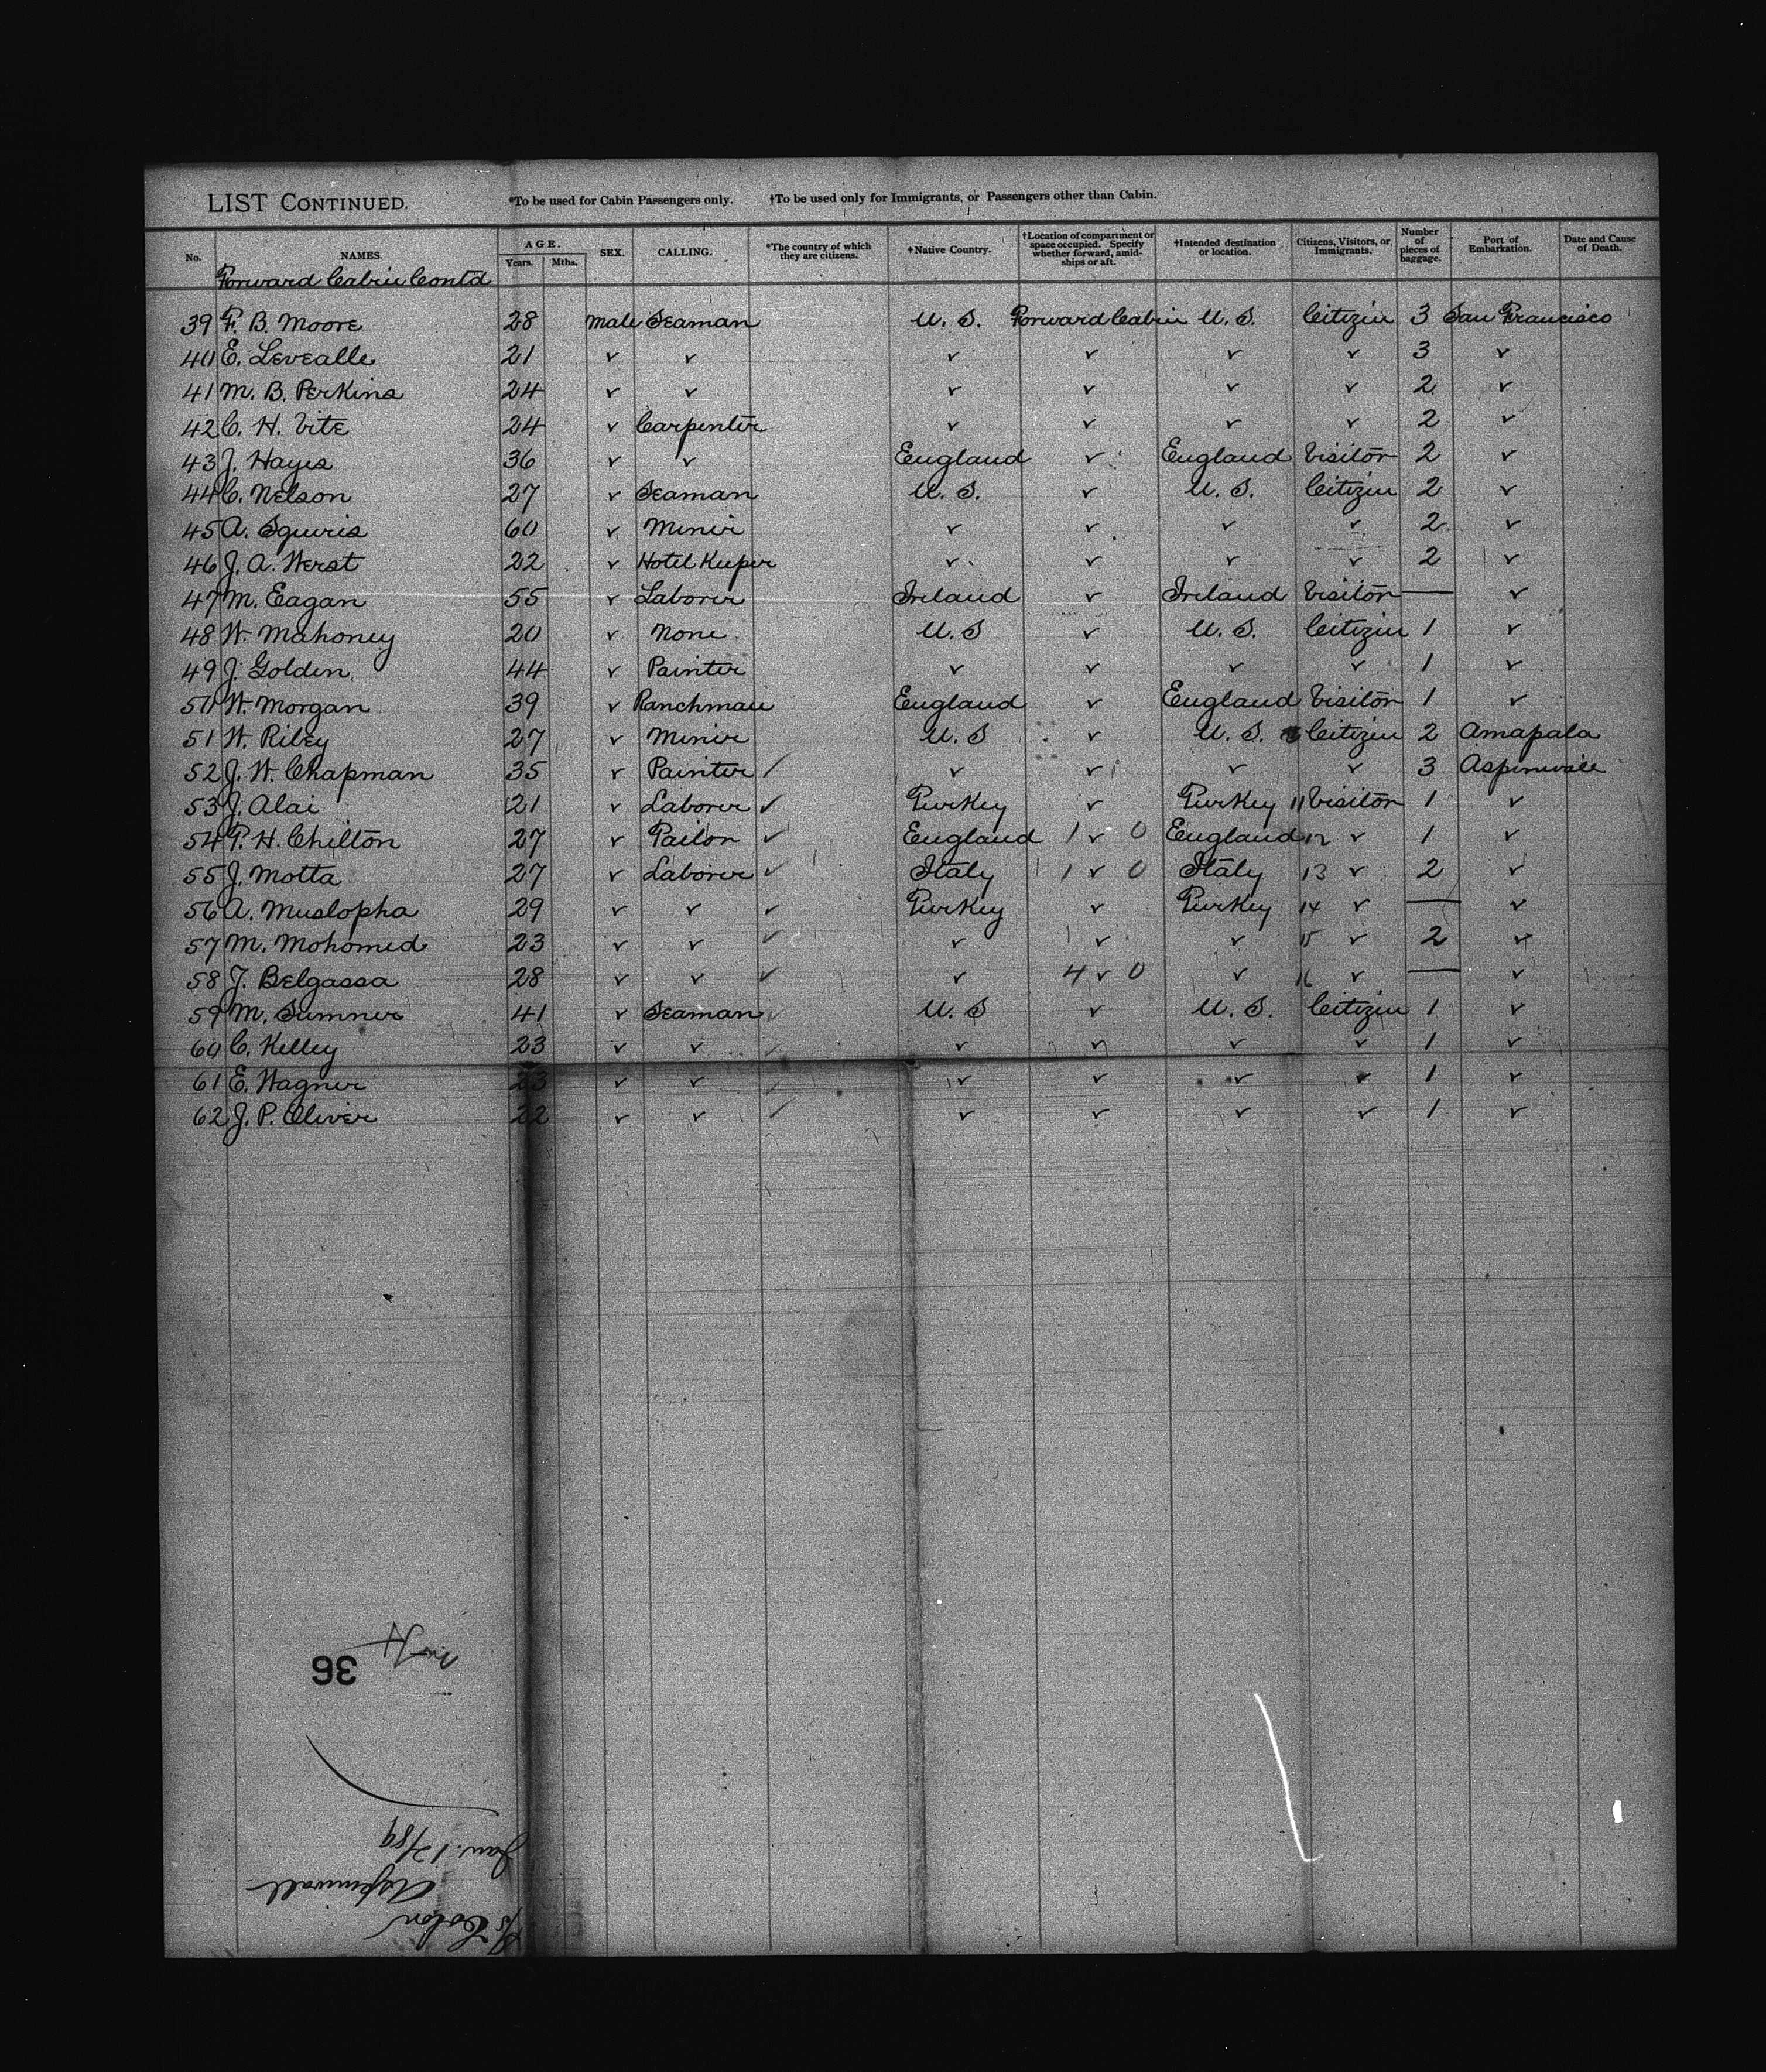 LIST CONTINUED. *To be used for Cabin Passengers only. †To be used only for Immigrants, or Passengers other than Cabin.
No. NAMES. AGE. Years. Mths. SEX. CALLING. *The country of which they are citizens. †Native Country. †Location of compartment or space occupied. Specify whether forward, amidships or aft. †Intended destination or location. Citizens, Visitors, or, Immigrants. Number of pieces of baggage. Port of Embarkation. Date and Cause of Death.
Forward Cabin Contd
39 F. B. Moore 28 Male Seaman U. S. Forward Cabin U. S. Citizen 3 San Francisco
40 E. Levealle 21 v v v v v v 3 v
41 M. B. Perkins 24 v v v v v v 2 v
42 C. H. Vite 24 v Carpenter v v v v 2 v
43 J. Hayes 36 v v England v England Visitor 2 v
44 C. Nelson 27 v Seaman U. S. v U. S. Citizen 2 v
45 A. Squires 60 v Miner v v v v 2 v
46 J. A. Werst 22 v Hotel Keeper v v v v 2 v
47 M. Eagan 55 v Laborer Ireland v Ireland Visitor — v
48 W. Mahoney 20 v None U. S v U. S. Citizen 1 v
49 J. Golden 44 v Painter v v v v 1 v
50 W. Morgan 39 v Ranchman England v England Visitor 1 v
51 W. Riley 27 v Miner U. S v U. S. Citizen 2 Amapala
52 J. W. Chapman 35 v Painter / v v v v 3 Aspinwall
53 J. Alai 21 v Laborer ✓ Turkey v Turkey 11 Visitor 1 v
54 T. H. Chilton 27 v Tailor ✓ England 1 v 0 England 12 v 1 v
55 J. Motta 27 v Laborer ✓ Italy 1 v 0 Italy 13 v 2 v
56 A. Muslopha 29 v v ✓ Turkey v Turkey 14 v — v
57 M. Mohomed 23 v v ✓ v v v 15 v 2 v
58 J. Belgassa 28 v v ✓ v 4 v 0 v 16 v — v
59 M. Sumner 41 v Seaman ✓ U. S v U. S. Citizen 1 v
60 C. Kelley 23 v v ✓ v v v v 1 v
61 E. Wagner 23 v v ✓ v v v v 1 v
62 J. P. Oliver 22 v v ✓ v v v v 1 v
36
Jan. 12/89
Aspinwall
S/S Colon